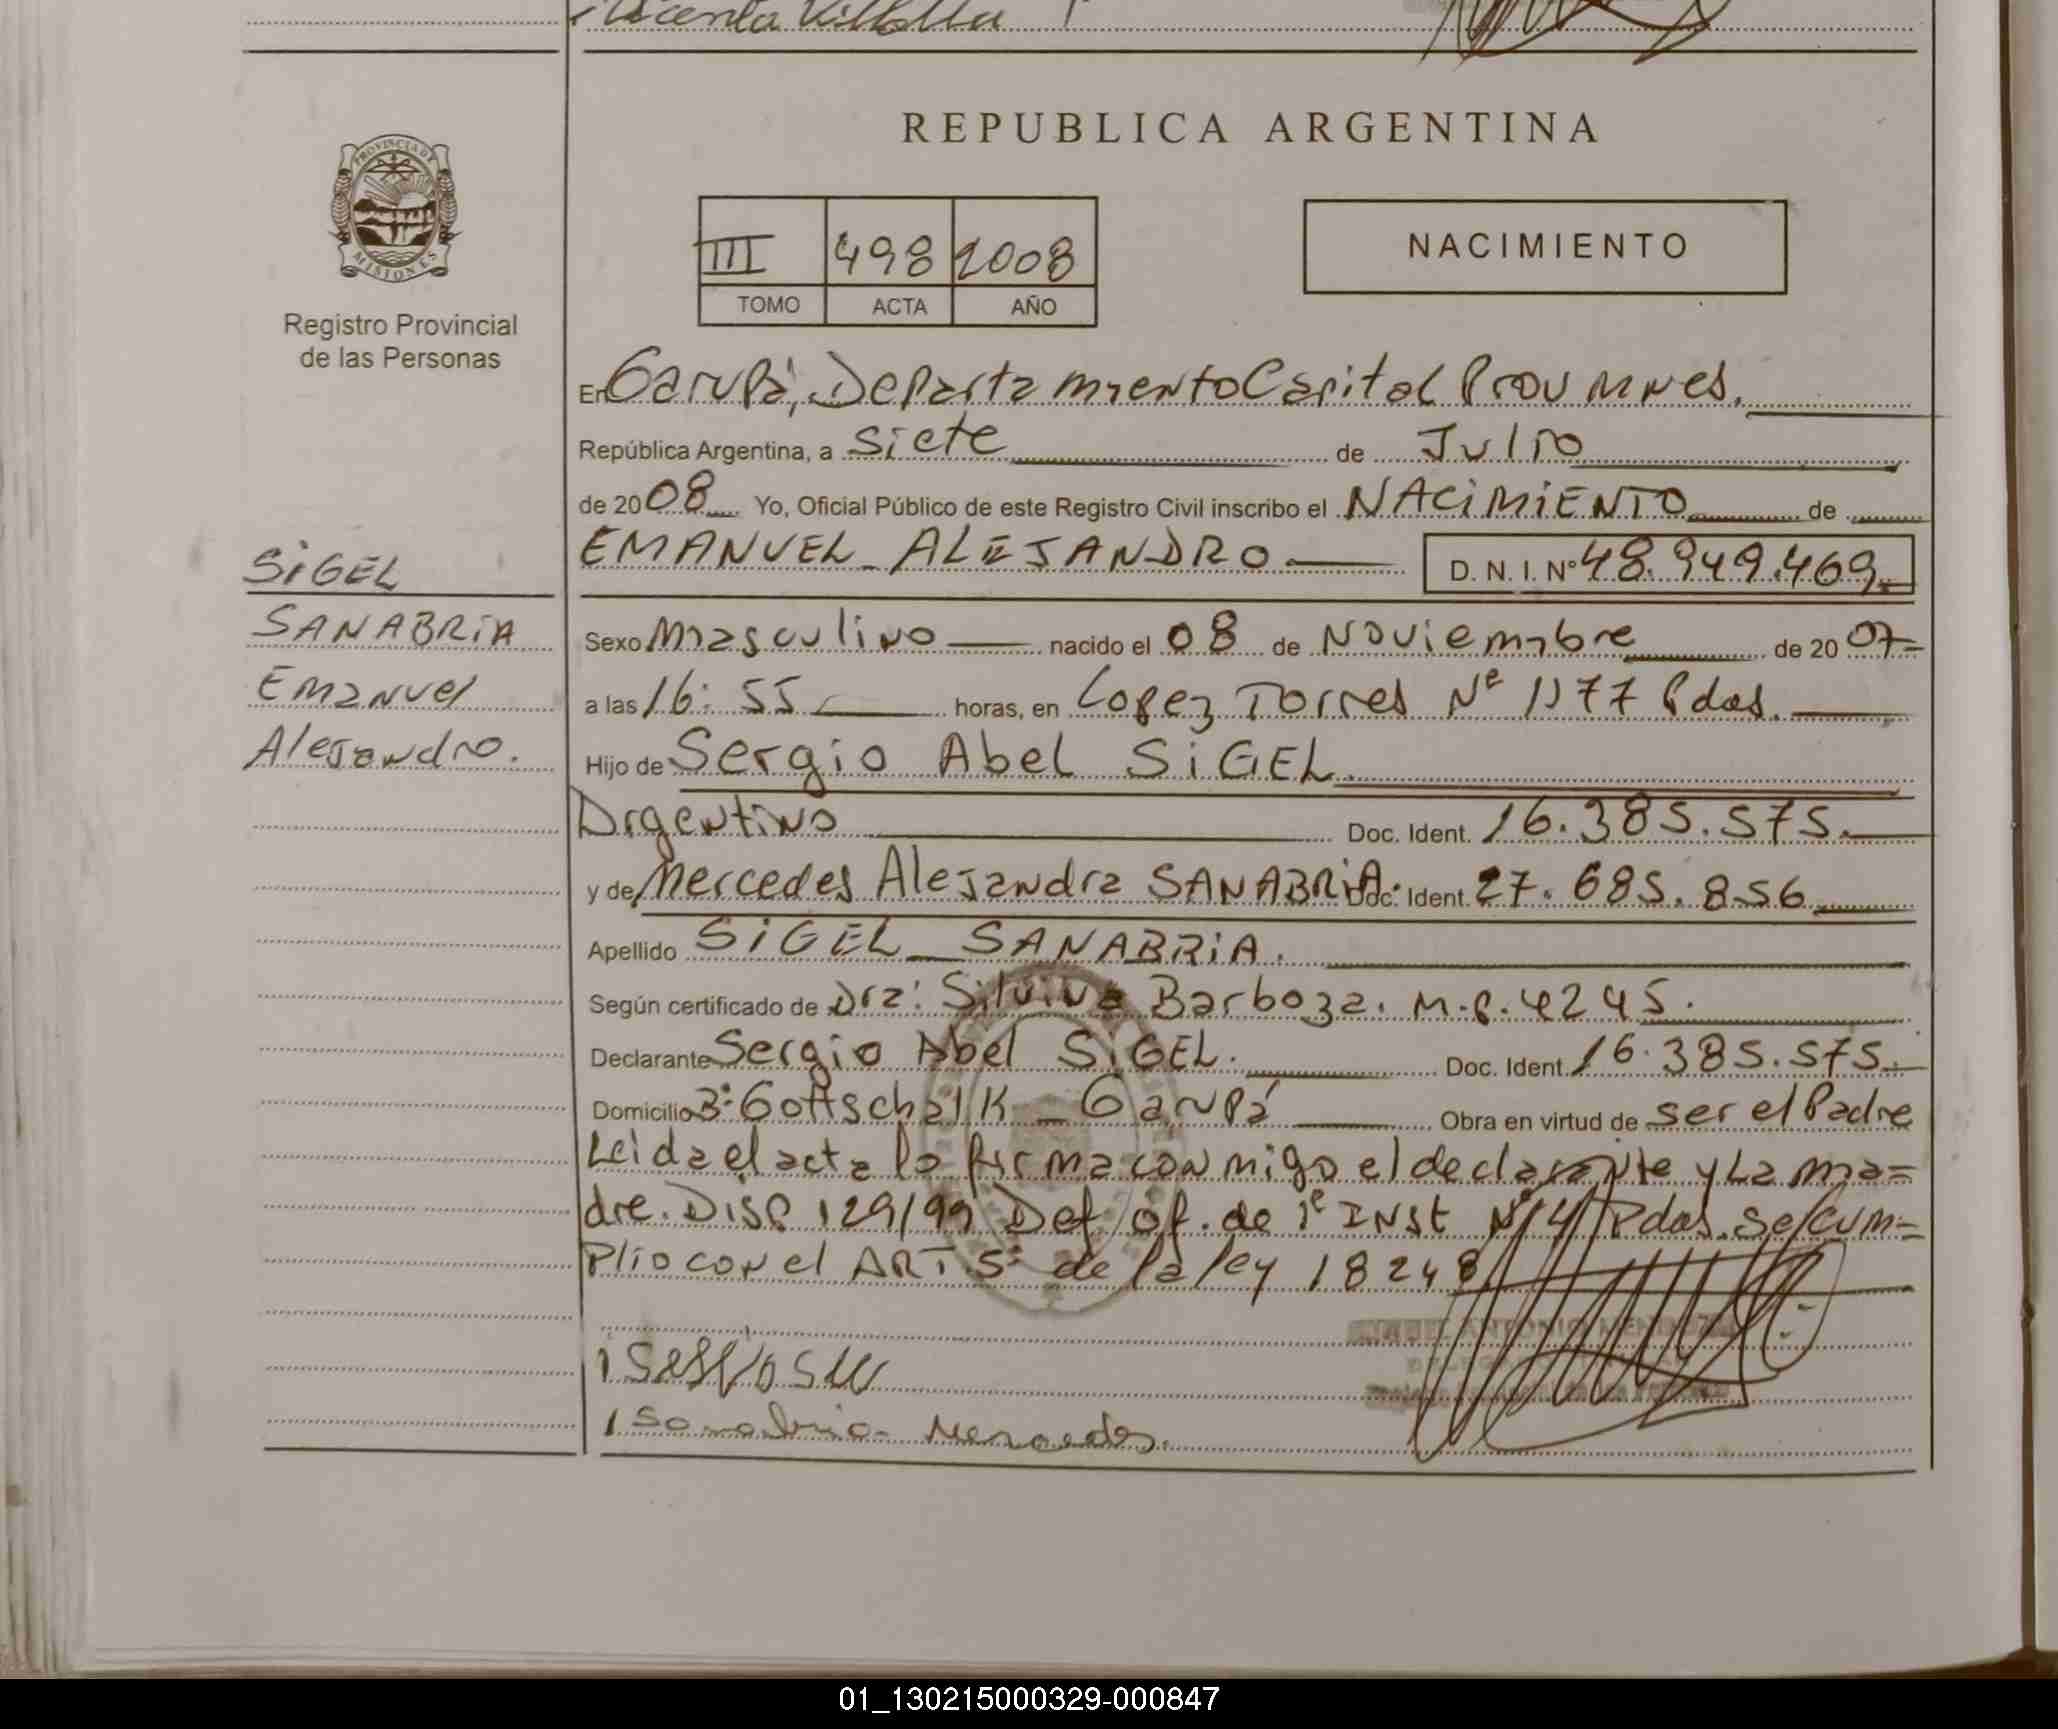 Vicenta Villalba
REPUBLICA ARGENTINA
PROVINCIA DE
MISIONES
Registro Provincial
de las Personas
III 498 2008
TOMO ACTA AÑO
NACIMIENTO
En Garupá, Departamento Capital Prov Mnes.
República Argentina, a siete de Julio
de 2008 Yo, Oficial Público de este Registro Civil inscribo el NACiMiENTO de
EMANUEL ALEJANDRO D. N. I. Nº 48.949.469
SiGEL
SANABRiA
Emanuel
Alejandro.
Sexo Masculino nacido el 08 de Noviembre de 2007
a las 16:55 horas, en Lopez Torres Nº 1177 Pdas.
Hijo de Sergio Abel SiGEL.
Argentino Doc. Ident. 16.385.575.
y de Mercedes Alejandra SANABRiA. Doc. Ident. 27.685.856
Apellido SiGEL SANABRiA.
Según certificado de Dra: Silvina Barboza. M.P. 4245.
Declarante Sergio Abel SiGEL. Doc. Ident. 16.385.575.
Domicilio Bº Gottschalk - Garupá Obra en virtud de ser el Padre
Leida el acta la firma conmigo el declarante y La ma=
dre. Disp 129/99 Def of. de 1º INST Nº 4 Pdas. se cum=
plio con el ART 5º de la ley 18248
ANTONIO
Sanabria Mercedes.
01_130215000329-000847